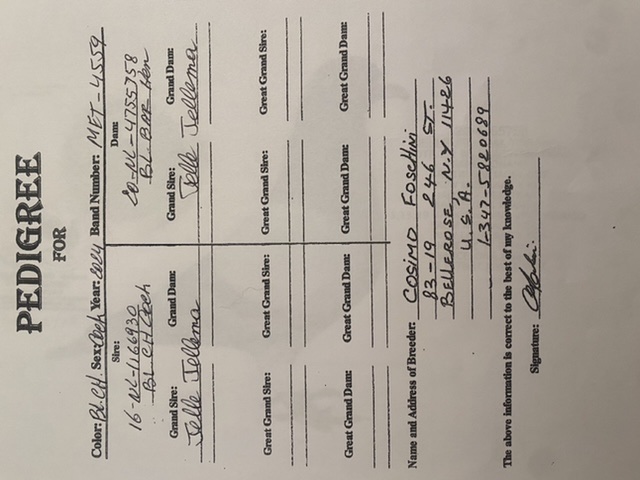 PEDIGREE
FOR
Color: BL.CH. Sex: Cock Year: 2024 Band Number: MET-4559
Sire: Dam:
16-NL-1166930 20-NL-4755758
BL CH Cock BL BAR Hen
Grand Sire: Grand Dam: Grand Sire: Grand Dam:
Jelle Jellema Jelle Jellema
Great Grand Sire: Great Grand Sire: Great Grand Sire: Great Grand Sire:
Great Grand Dam: Great Grand Dam: Great Grand Dam: Great Grand Dam:
Name and Address of Breeder: COSIMO FOSCHINI
83-19 246 ST.
BELLEROSE, N.Y 11426
U.S.A.
1-347-5820689
The above information is correct to the best of my knowledge.
Signature: